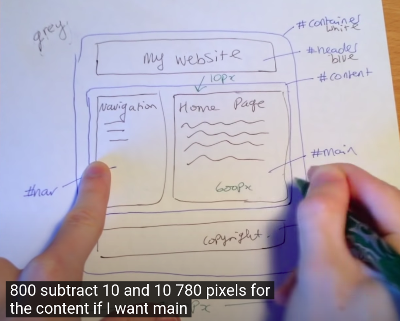 grey
#container
white
My website
#header
blue
10px
#content
Navigation
Home Page
#main
600px
#nav
copyright.
800 subtract 10 and 10 780 pixels for
the content if I want main
px